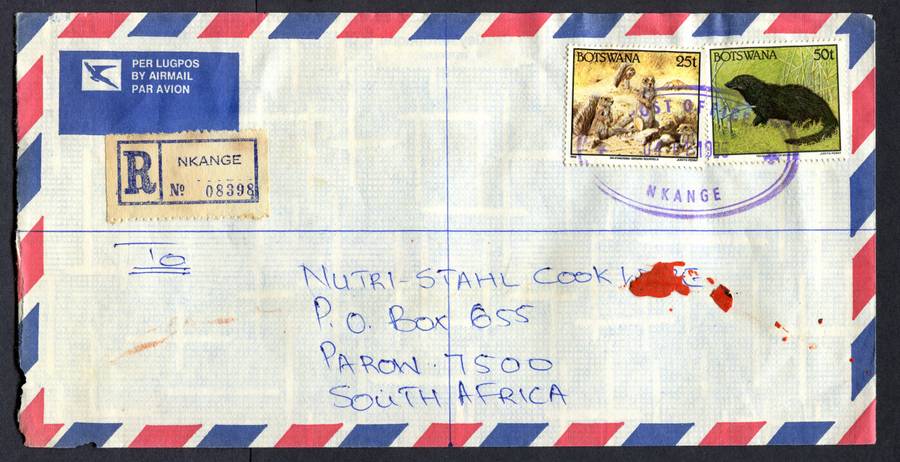 PER LUGPOS
BY AIRMAIL
PAR AVION
R
NKANGE
Nº 08398
BOTSWANA 25t
BOTSWANA 50t
POST OFFICE
NKANGE
To
NUTRI-STAHL COOKWARE
P.O. BOX 655
PAROW 7500
SOUTH AFRICA